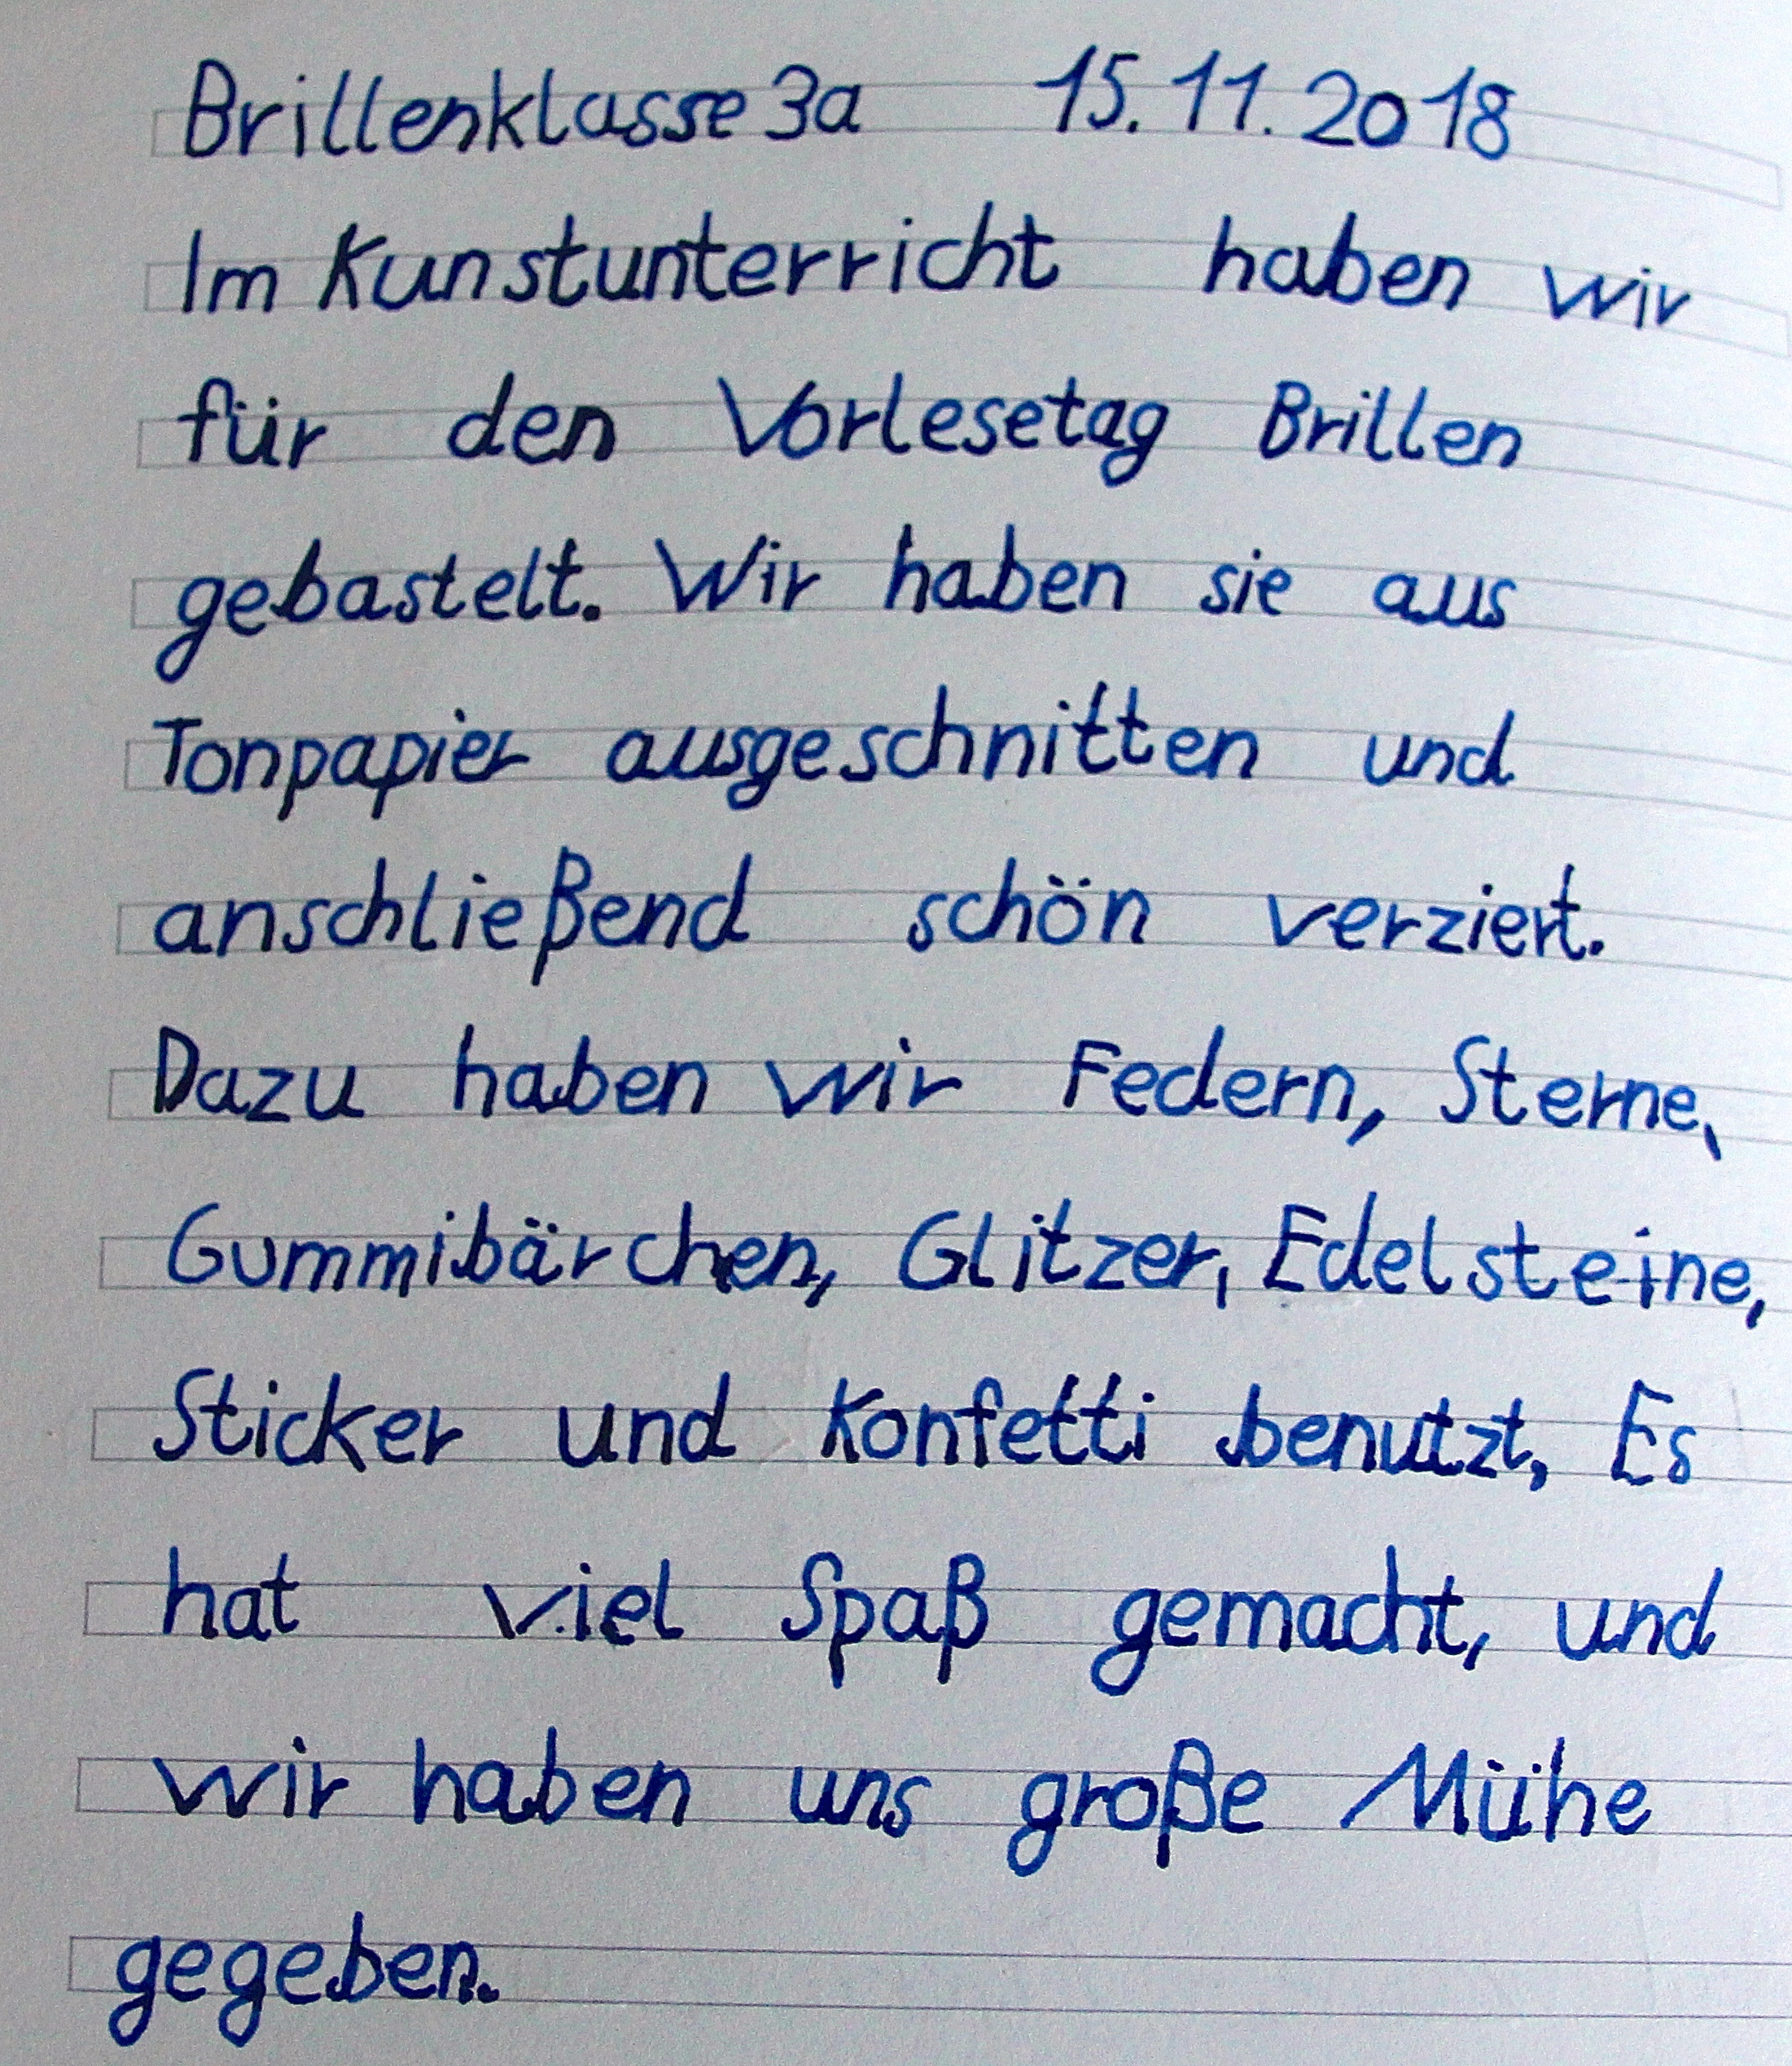 Brillenklasse 3a 15.11.2018
Im Kunstunterricht haben wir
für den Vorlesetag Brillen
gebastelt. Wir haben sie aus
Tonpapier ausgeschnitten und
anschließend schön verziert.
Dazu haben wir Federn, Sterne,
Gummibärchen, Glitzer, Edelsteine,
Sticker und Konfetti benutzt. Es
hat viel Spaß gemacht, und
wir haben uns große Mühe
gegeben.